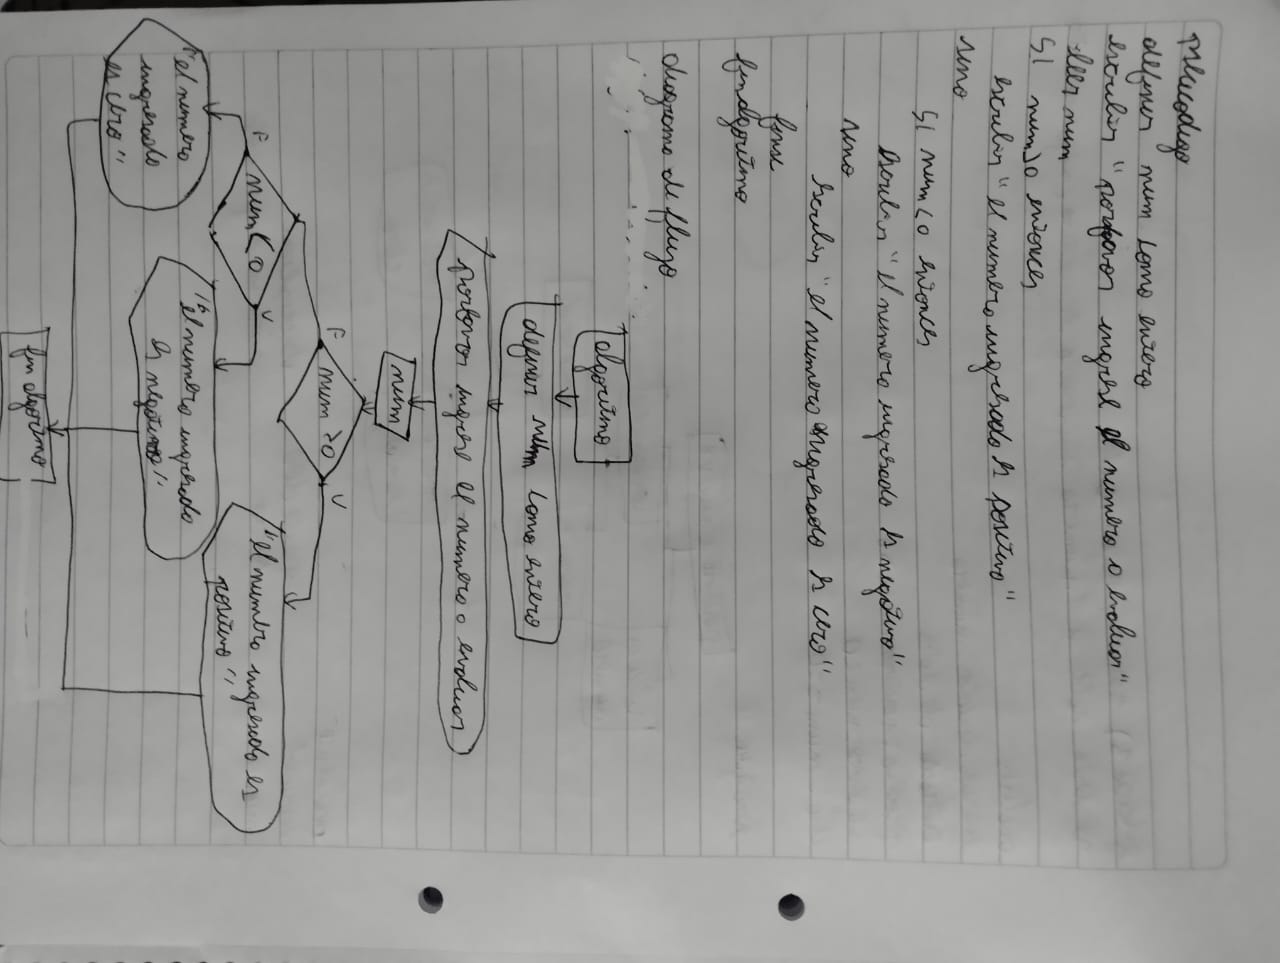 pseucodigo
definir num como entero
escribir "porfavor ingrese el numero a evaluar"
leer num
SI num>0 entonces
escribir "el numero ingresado es positivo"
sino
SI num<0 entonces
escribir "el numero ingresado es negativo"
sino
escribir "el numero ingresado es cero"
finsi
finalgoritmo
diagrama de flujo
algoritmo
definir num como entero
porfavor ingrese el numero a evaluar
num
F
num >0
V
F
num<0
V
"el numero
ingresado
es cero"
"el numero ingresado
es negativo"
"el numero ingresado es
positivo"
fin algoritmo